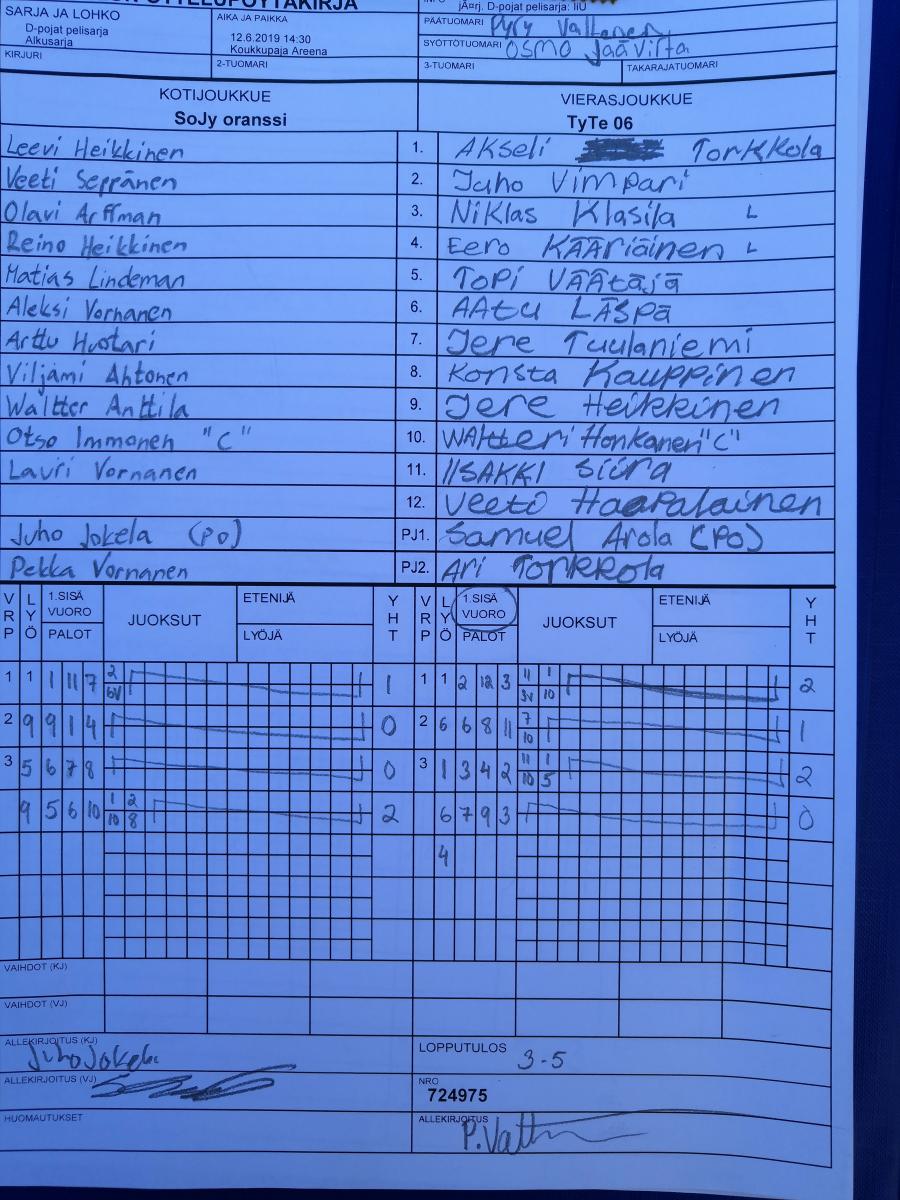 OTTELUPÖYTÄKIRJA
SARJA JA LOHKO
D-pojat pelisarja
Alkusarja
AIKA JA PAIKKA
12.6.2019 14:30
Koukkupaja Areena
jÃ¤rj. D-pojat pelisarja: IiU
PÄÄTUOMARI Pyry Valtonen
SYÖTTÖTUOMARI OSMO Jäävirta
KIRJURI
2-TUOMARI
3-TUOMARI
TAKARAJATUOMARI
KOTIJOUKKUE
SoJy oranssi
VIERASJOUKKUE
TyTe 06
Leevi Heikkinen 1. Akseli Torkkola
Veeti Seppänen 2. Juho Vimpari
Olavi Arffman 3. Niklas Klasila L
Reino Heikkinen 4. Eero Kääriäinen L
Matias Lindeman 5. Topi Väätäjä
Aleksi Vornanen 6. Aatu Läspä
Arttu Huotari 7. Jere Tuulaniemi
Viljami Ahtonen 8. Konsta Kauppinen
Waltter Anttila 9. Jere Heikkinen
Otso Immonen "C" 10. Waltteri Honkanen "C"
Lauri Vornanen 11. IISAKKI Siira
12. Veeti Haapalainen
Juho Jokela (PO) PJ1. Samuel Arola (PO)
Pekka Vornanen PJ2. Ari Torkkola
VRP LYÖ 1.SISÄ VUORO PALOT JUOKSUT ETENIJÄ LYÖJÄ YHT VRP LYÖ 1.SISÄ VUORO PALOT JUOKSUT ETENIJÄ LYÖJÄ YHT
1 1 1 11 7 2 6V 1 1 1 2 12 3 11 1 3V 10 2
2 9 9 1 4 0 2 6 6 8 11 7 10 1
3 5 6 7 8 0 3 1 3 4 2 11 1 10 5 2
9 5 6 10 1 2 10 8 2 6 7 9 3 0
4
VAIHDOT (KJ)
VAIHDOT (VJ)
ALLEKIRJOITUS (KJ)
Juho Jokela
LOPPUTULOS
3-5
ALLEKIRJOITUS (VJ)
NRO
724975
HUOMAUTUKSET
ALLEKIRJOITUS